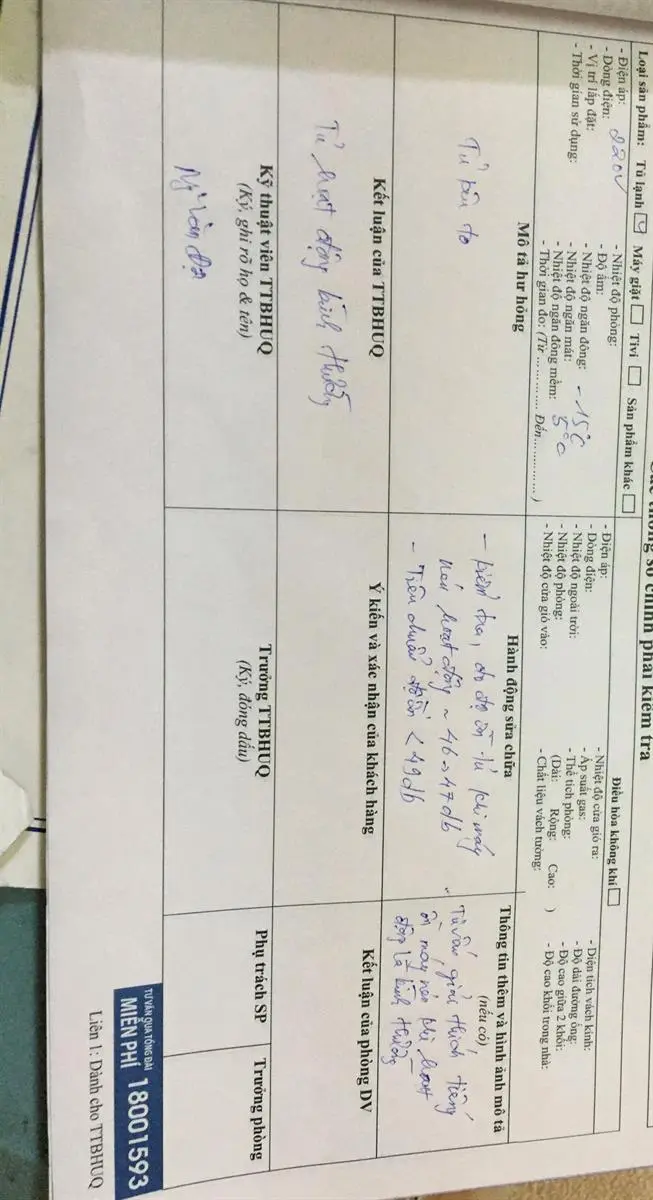 Các thông số chính phải kiểm tra
Loại sản phẩm: Tủ lạnh ☑ Máy giặt ☐ Tivi ☐ Sản phẩm khác ☐
- Điện áp: 220V
- Dòng điện:
- Vị trí lắp đặt:
- Thời gian sử dụng:
- Nhiệt độ phòng:
- Độ ẩm:
- Nhiệt độ ngăn đông: -15°C
- Nhiệt độ ngăn mát: 5°C
- Nhiệt độ ngăn đông mềm:
- Thời gian đo: (Từ ............ Đến............)
Điều hòa không khí ☐
- Điện áp:
- Dòng điện:
- Nhiệt độ ngoài trời:
- Nhiệt độ phòng:
- Nhiệt độ cửa gió vào:
- Nhiệt độ cửa gió ra:
- Áp suất gas:
- Thể tích phòng:
(Dài: Rộng: Cao: )
- Chất liệu vách tường:
- Diện tích vách kính:
- Độ dài đường ống:
- Độ cao giữa 2 khối:
- Độ cao khối trong nhà:
Mô tả hư hỏng
Tủ kêu to
Hành động sửa chữa
- kiểm tra, đo độ ồn tủ khi máy
nén hoạt động ~ 46->47db
- Tiêu chuẩn độ ồn < 49db
Thông tin thêm và hình ảnh mô tả
(nếu có)
Tư vấn, giải thích tiếng
ồn máy nén khi hoạt
động là bình thường
Kết luận của TTBHUQ
Tủ hoạt động bình thường
Ý kiến và xác nhận của khách hàng
Kết luận của phòng DV
Kỹ thuật viên TTBHUQ
(Ký, ghi rõ họ & tên)
Trưởng TTBHUQ
(Ký, đóng dấu)
Phụ trách SP
Trưởng phòng
TƯ VẤN QUA TỔNG ĐÀI
MIỄN PHÍ 18001593
Liên 1: Dành cho TTBHUQ